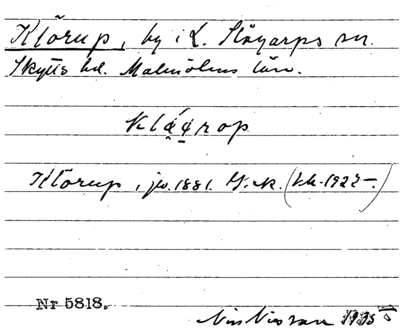 Klörup, by i L. Slågarps sn.
Skytts hd. Malmöhus län.
klǫ́ǫrop
Klörup, jv. 1881. G.sk. (h.h. 1927-.)
Nr 5818.
Nils Nilsson 1935